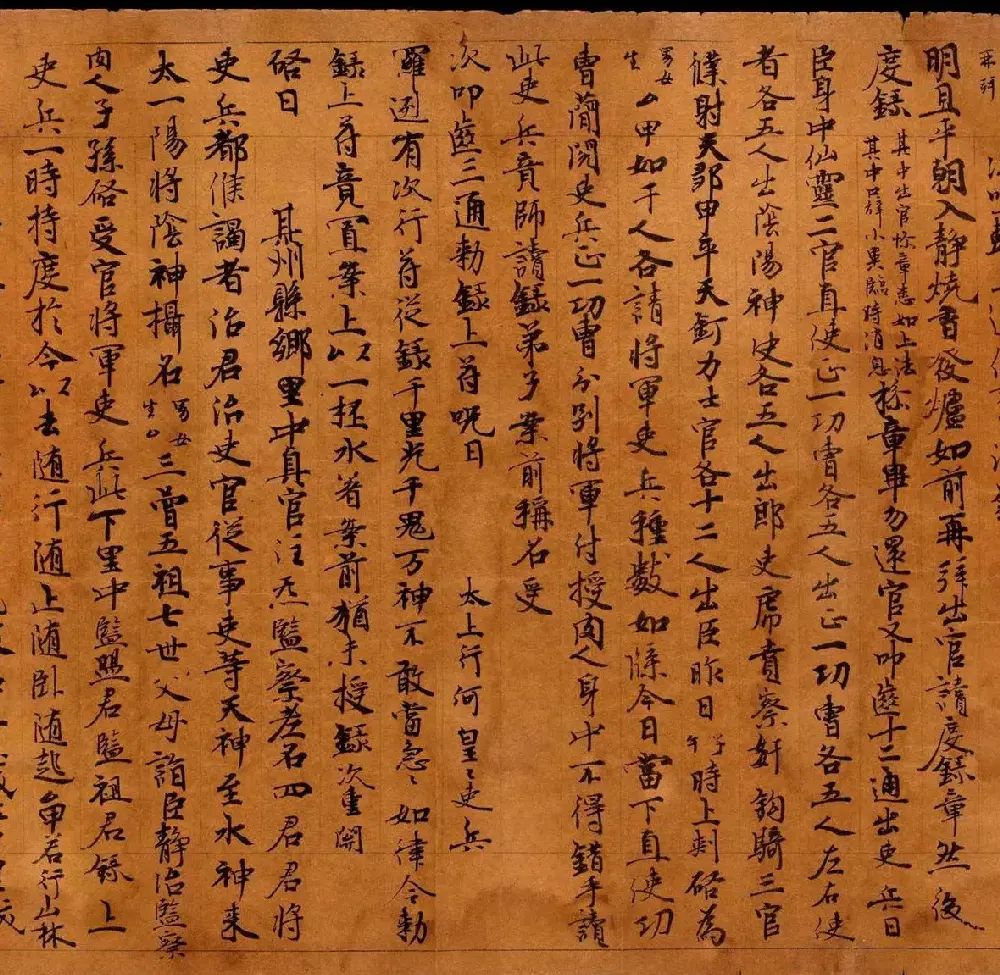 再拜
明旦平朝入静燒香發爐如前再拜出官讀度錄章然後
度錄其中出官啟章悉如上法其中口辞小異臨時消息操章畢勿還官又叩齒十二通出吏兵曰
臣身中仙靈二官直使正一功曹各五人出正一功曹各五人左右使
者各五人出陰陽神史各五人出郎吏虎賁察姧鉤騎三官
僕射天鄒甲卒天釘力士官各十二人出臣昨日子午時上刺啓為
男女生厶甲如干人各請將軍吏兵種數如牒今日當下直使功
曹簡閱吏兵正一功曹分別將軍付授肉人身中不得錯手請
此吏兵賫師請錄弟子案前稱名受
次叩齒三通勑錄上苻呪曰 太上行何皇〻吏兵
羅迾有次行苻從錄千里光千鬼万神不敢當急〻如律令勑
錄上苻竟置案上以一柸水著案前猶未授錄次重開
啓曰 某州縣鄉里中真官注炁監察考召四君君將
吏兵都候謁者治君治吏官從事吏等天神至水神来
太一陽將陰神攝名男女生厶三曾五祖七世父母詣臣静治監察
肉人子孫啓受官將軍吏兵此下里中監照君監祖君錄上
吏兵一時持度於今以去随行随上随卧随起若行山林